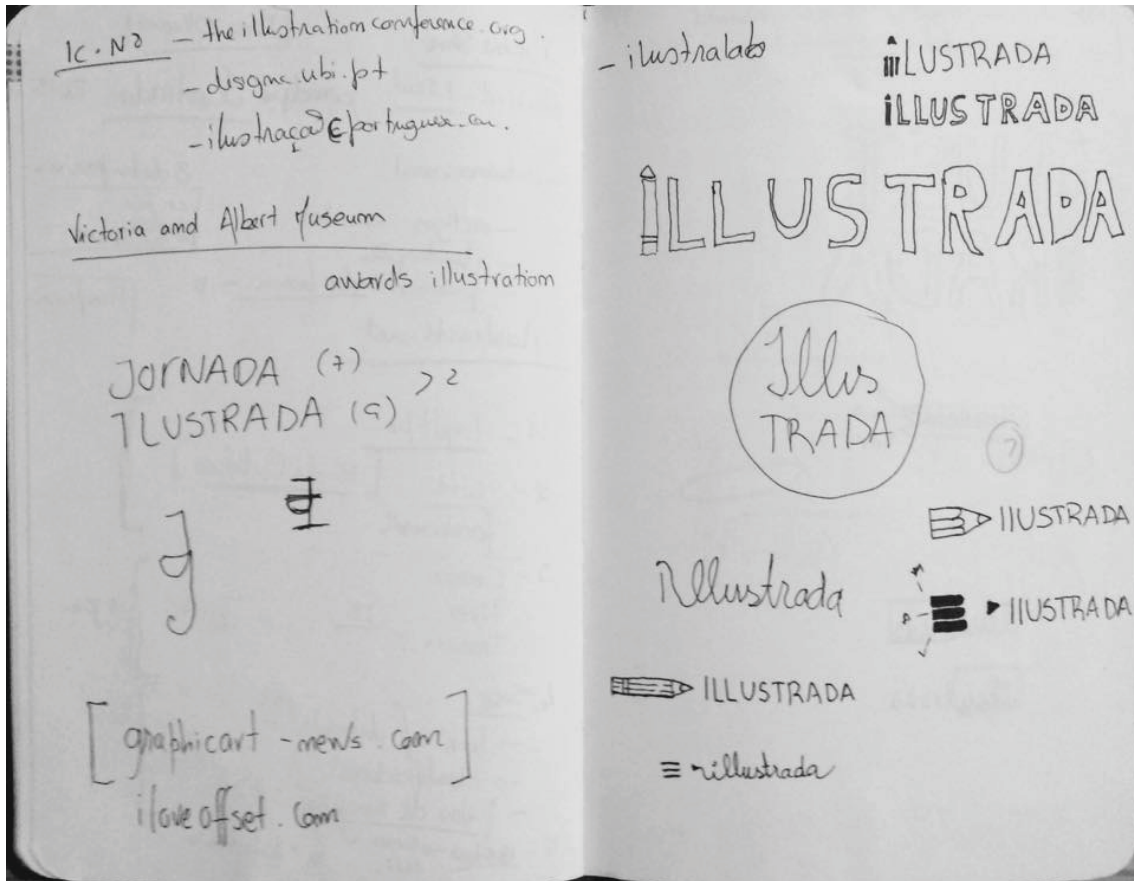 IC.N2 - theillustrationconference.org.
- designe.ubi.pt
- ilustraçao portuguesa.
Victoria and Albert Museum
awards illustration
JORNADA (7)
> 2
ILUSTRADA (9)
J
[graphicart-news.com]
iloveoffset.com
- ilustralab
iLUSTRADA
iLLUSTRADA
iLLUSTRADA
Illus
TRADA
IIUSTRADA
illustrada
IIUSTRADA
ILLUSTRADA
illustrada